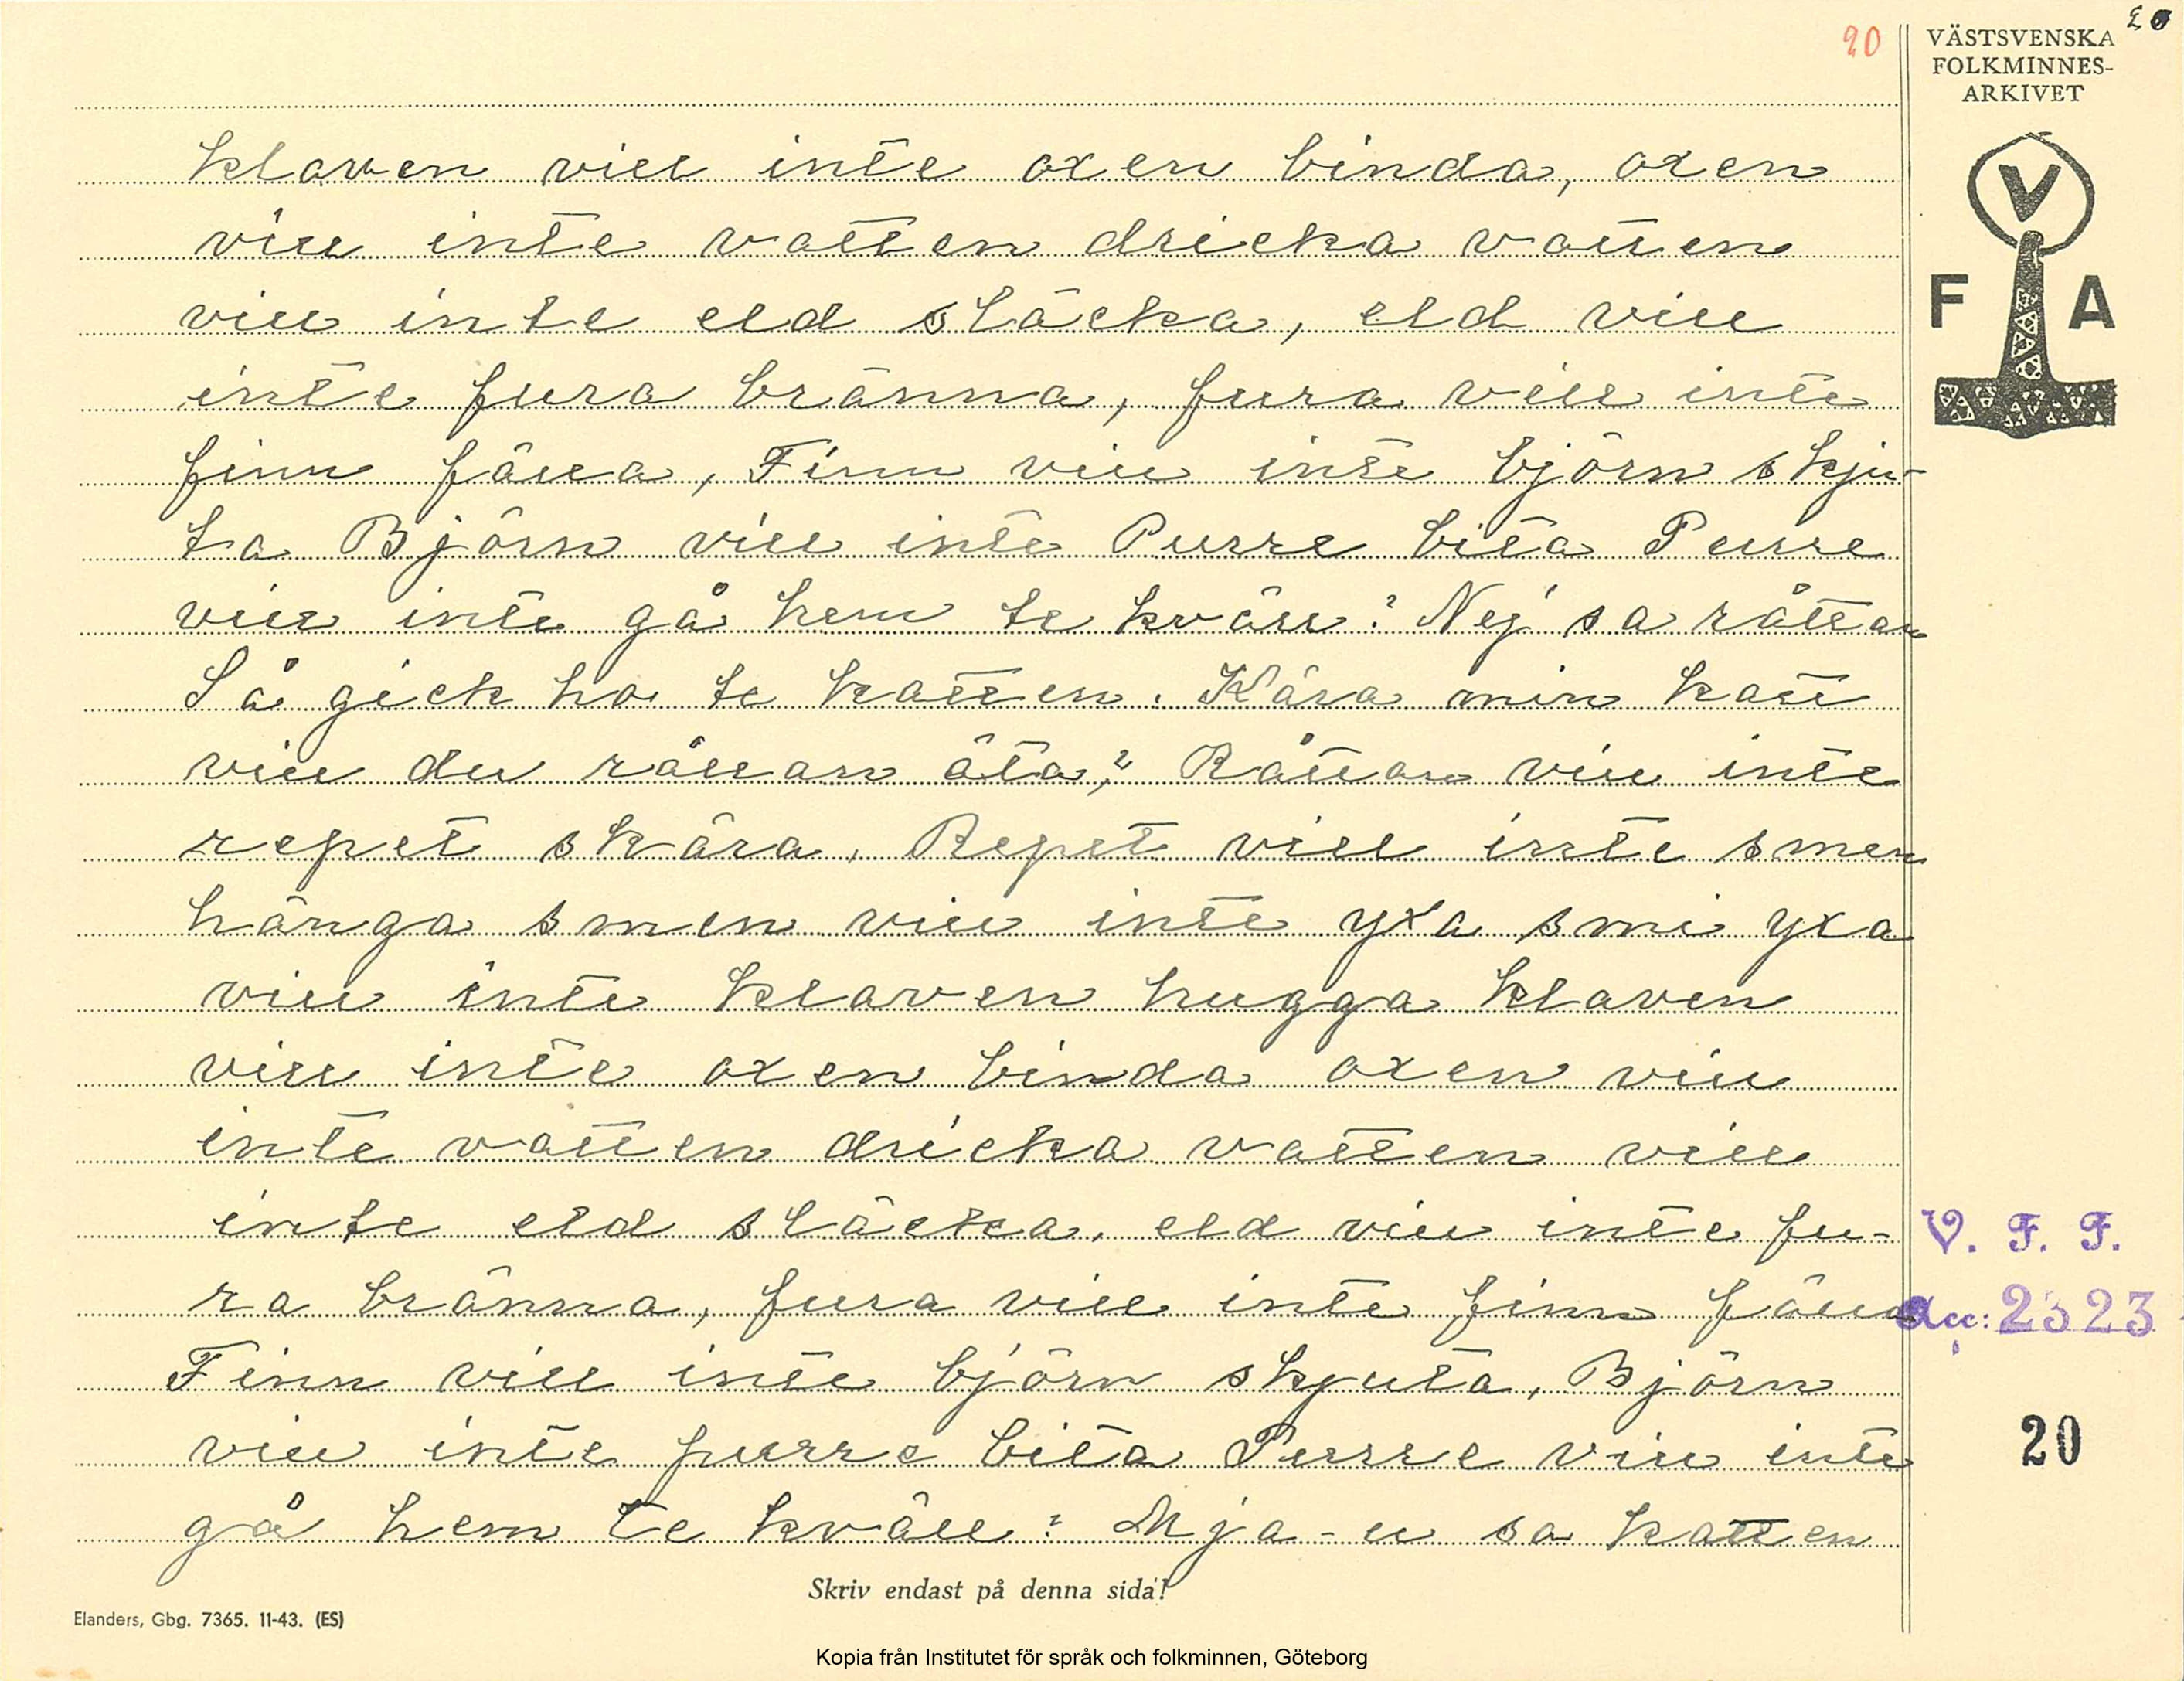 20
20
VÄSTSVENSKA
FOLKMINNES-
ARKIVET
V
F A
klaven vill inte oxen binda, oxen
vill inte vatten dricka vatten
vill inte eld släcka, eld vill
inte fura bränna, fura vill inte
finn fälla, Finn vill inte björn skju-
ta Björn vill inte Purre bita Purre
vill inte gå hem te kväll? Nej sa råttan
Så gick ho te katten. Kära min katt
vill du råttan äta,? Råttan vill inte
repet skära, Repet vill inte smen
hänga smen vill inte yxa smi yxa
vill inte klaven hugga klaven
vill inte oxen binda oxen vill
inte vatten dricka vatten vill
inte eld släcka, eld vill inte fu-
ra bränna, fura vill inte finn fälla
Finn vill inte björn skjuta, Björn
vill inte purre bita Purre vill inte
gå hem te kväll? Mja-u sa katten
V. F. F.
Acc: 2323
20
Skriv endast på denna sida!
Elanders, Gbg. 7365. 11-43. (ES)
Kopia från Institutet för språk och folkminnen, Göteborg